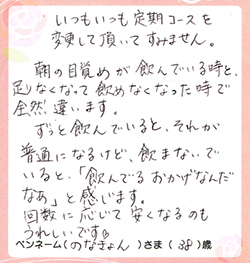 いつもいつも定期コースを
変更して頂いてすみません。
朝の目覚めが飲んでいる時と、
足りなくなって飲めなくなった時で
全然違います。
ずっと飲んでいると、それが
普通になるけど、飲まないで
いると、「飲んでるおかげなんだ
なあ」と感じます。
回数に応じて安くなるのも
うれしいです。
ペンネーム(のなきょん)さま(38)歳